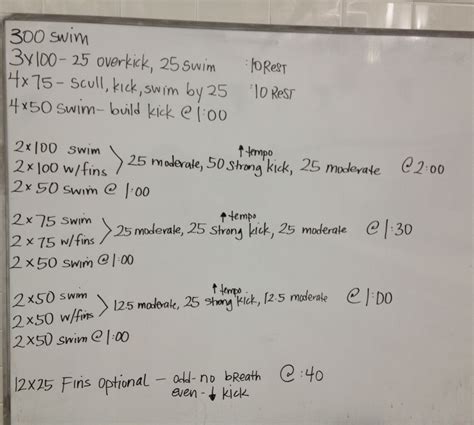 300 swim
3x100 - 25 overkick, 25 swim :10 Rest
4x75 - scull, kick, swim by 25 :10 Rest
4x50 swim - build kick @ 1:00
2x100 swim
2x100 w/fins > 25 moderate, 50 strong kick, 25 moderate @ 2:00
↑ tempo
2x50 swim @ 1:00
2x75 swim
2x75 w/fins > 25 moderate, 25 strong kick, 25 moderate @ 1:30
↑ tempo
2x50 swim @ 1:00
2x50 swim
2x50 w/fins > 12.5 moderate, 25 strong kick, 12.5 moderate @ 1:00
↑ tempo
2x50 swim @ 1:00
12x25 Fins optional - odd - no breath @ :40
even - ↓ kick